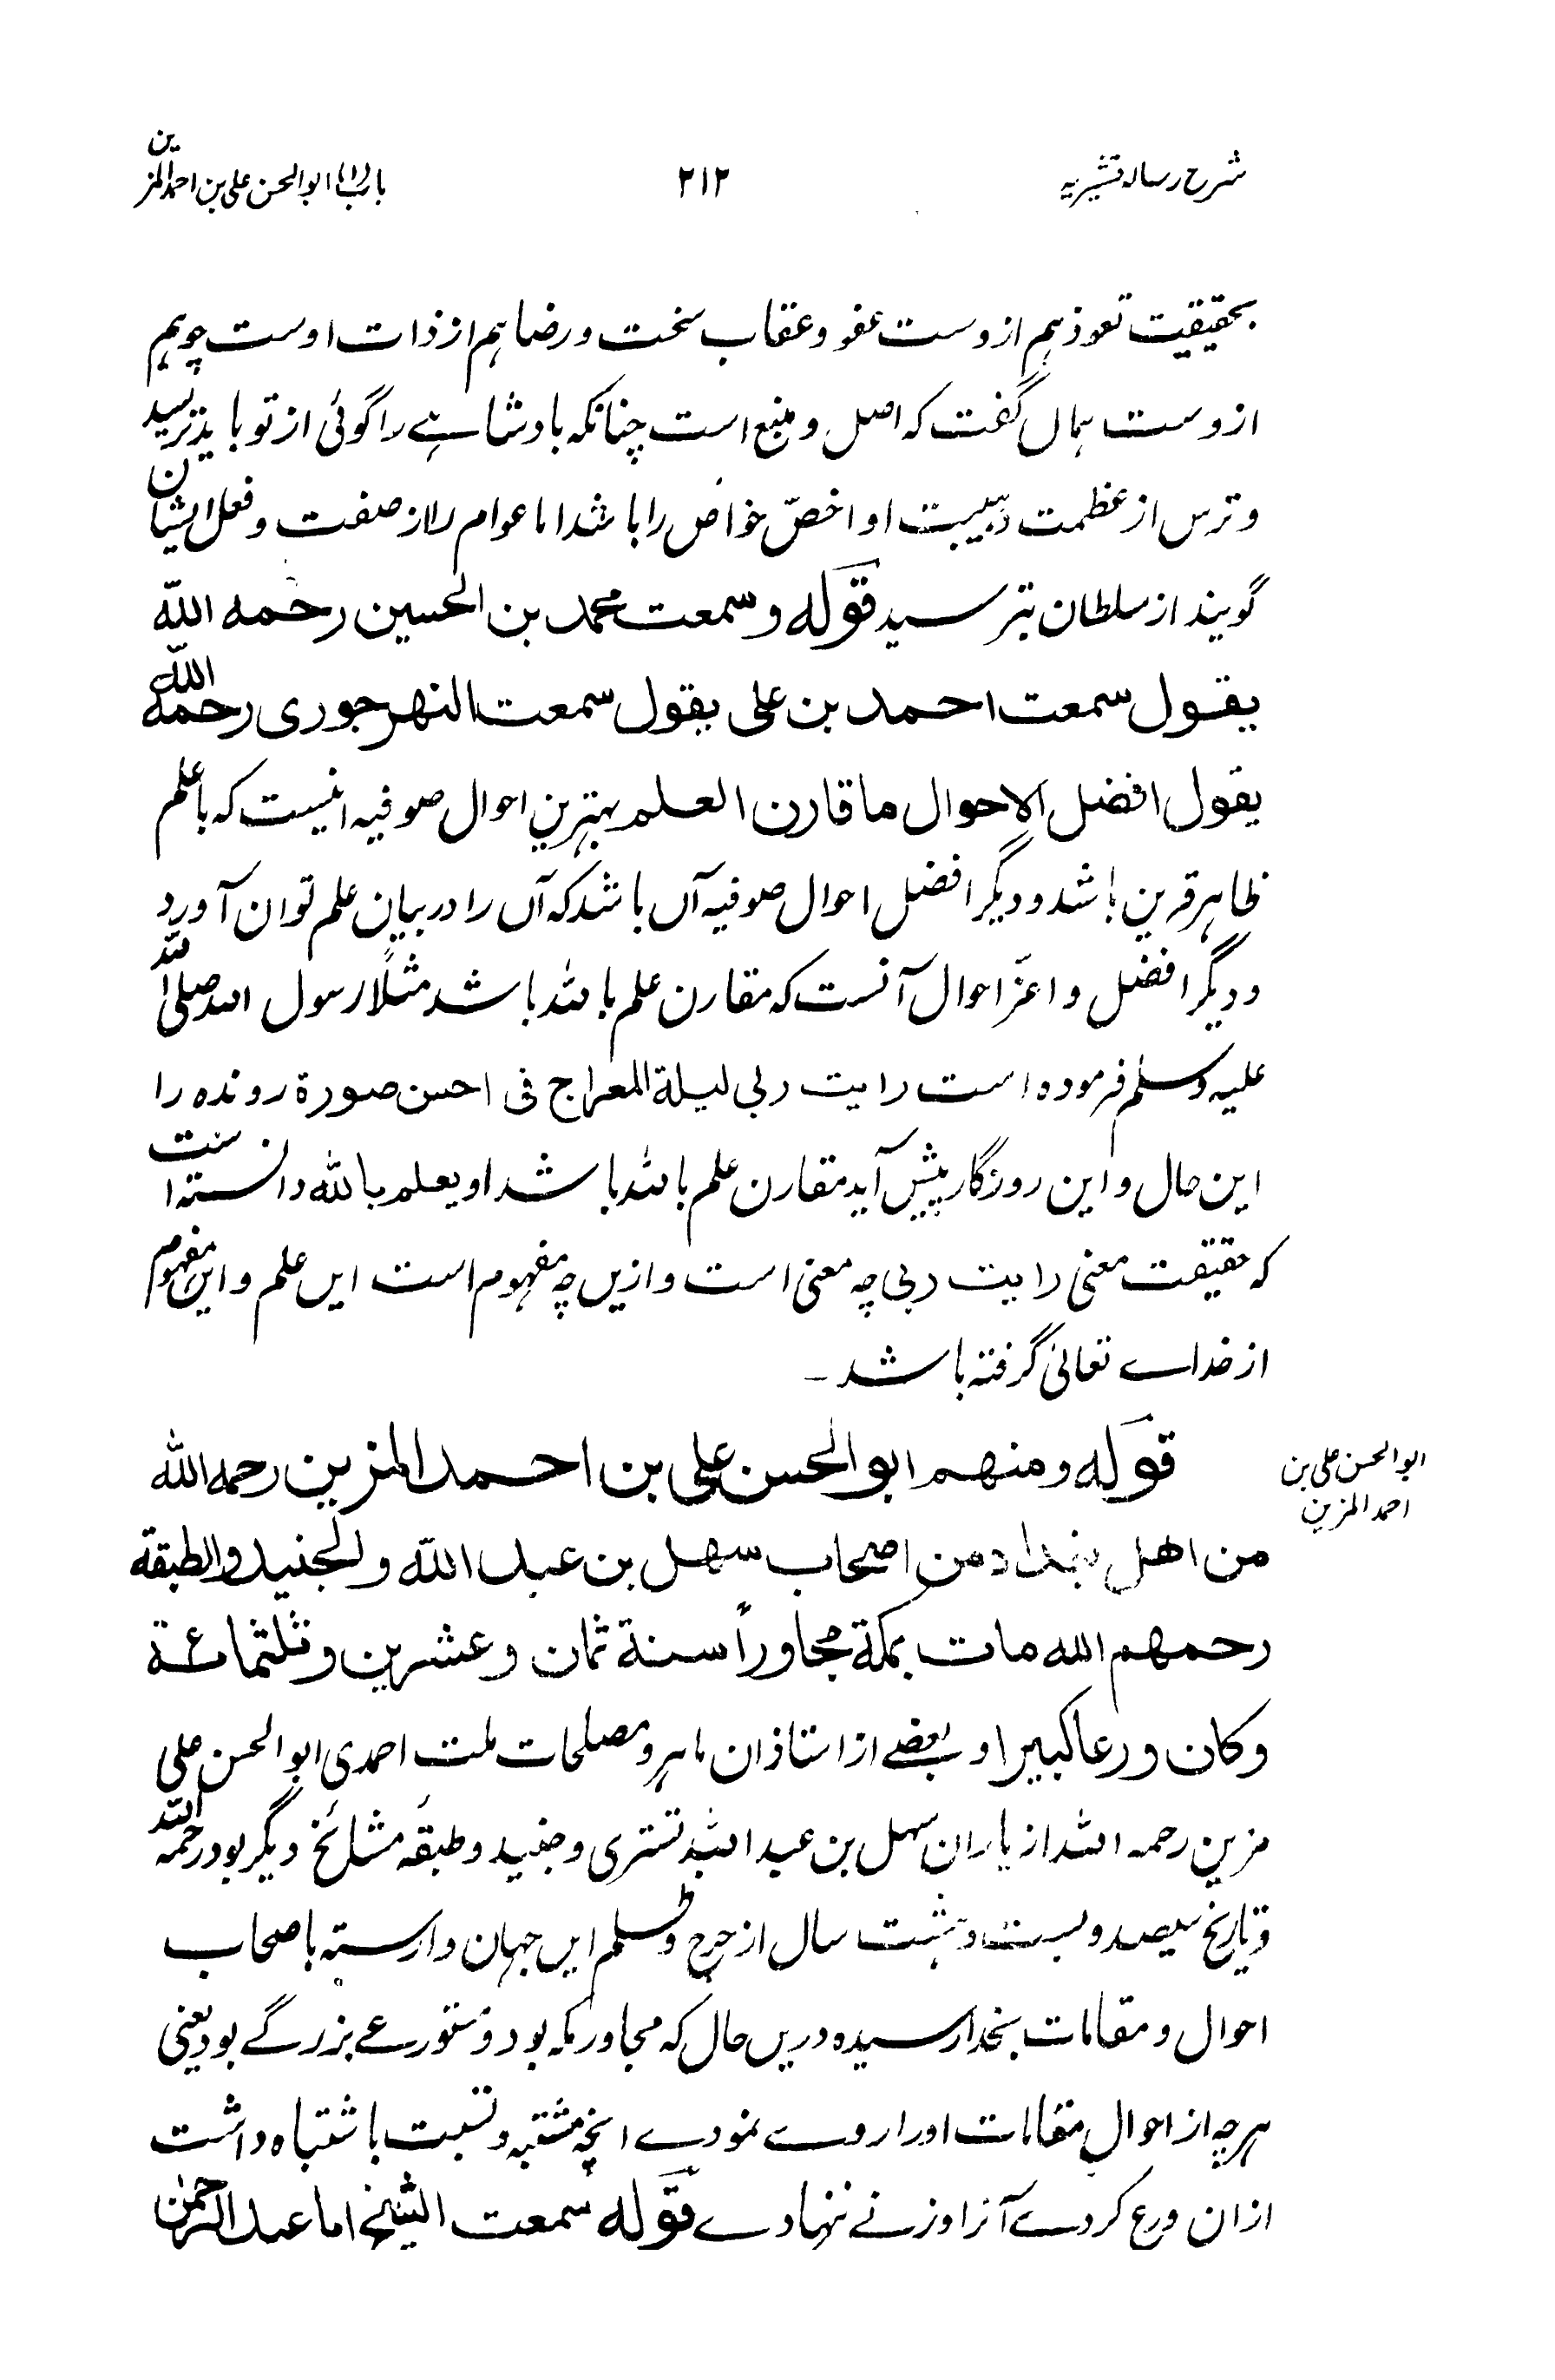 شرح رساله قشیریه
۲۱۲
باب (۱۰) ابو الحسن علی بن احمد المزین
بحقیقیت تعوذ هم ازوست عفو و عقاب سخت و رضا هم از ذات اوست چو هم
ازوست همال گفت که اصل و منبع است چنانکه بادشاهے را گوئی از تو باید ترسید
و ترس از عظمت و هیبت او اخصّ خواص را باشد اما عوام را از صفت و فعل ایشان
گویند از سلطان بترسید قوله وسمعت محمد بن الحسین رحمه الله
یقول سمعت احمد بن علی یقول سمعت النهرجوری رحمه الله
یقول افضل الاحوال ما قارن العلم بهترین احوال صوفیه اینست که با علم
ظاهر قرین باشد و دیگر افضل احوال صوفیه آں باشد که آں را در بیان علم توان آورد
و دیگر افضل و اعزّ احوال آنست که مقارن علم بالله باشد مثلاً رسول الله صلی الله
علیه وسلم فرموده است رایت ربی لیلة المعراج فی احسن صورة رونده را
این حال و این روزگار پیش آید مقارن علم بالله باشد او بعلم بالله دانسته است
که حقیقت معنی رایت ربی چه معنی است وازیں چه مفهوم است ایں علم و این مفهوم
از خداے تعالیٰ گرفته باشد ـ
قوله ومنهم ابو الحسن علی بن احمد المزین رحمه الله
ابو الحسن علی بن
احمد المزین
من اهل بغداد من اصحاب سهل بن عبد الله والجنید والطبقة
رحمهم الله مات بمکة مجاوراً سنة ثمان وعشرین وثلثمائة
وکان ورعا کبیرا و بعضے از استاذان ماهر و مصلحات ملت احمدی ابو الحسن علی
مزین رحمه الله از یاران سهل بن عبد الله تستری و جنید و طبقۂ مشائخ دیگر بود رحمه الله
و تاریخ سیصد و بست و هشت سال از جرح و ظلم ایں جهان وارسته باصحاب
احوال و مقامات بخدا رسیده دریں حال که مجاور مکه بود و متورعے بزرگے بود یعنی
هر چه از احوال مقامات او را روے نمودے انچه مشتبه و نسبت باشتباه داشت
ازان ورع کردے آنرا وزنے ننهادے قوله سمعت الشیخ ابا عبد الرحمن